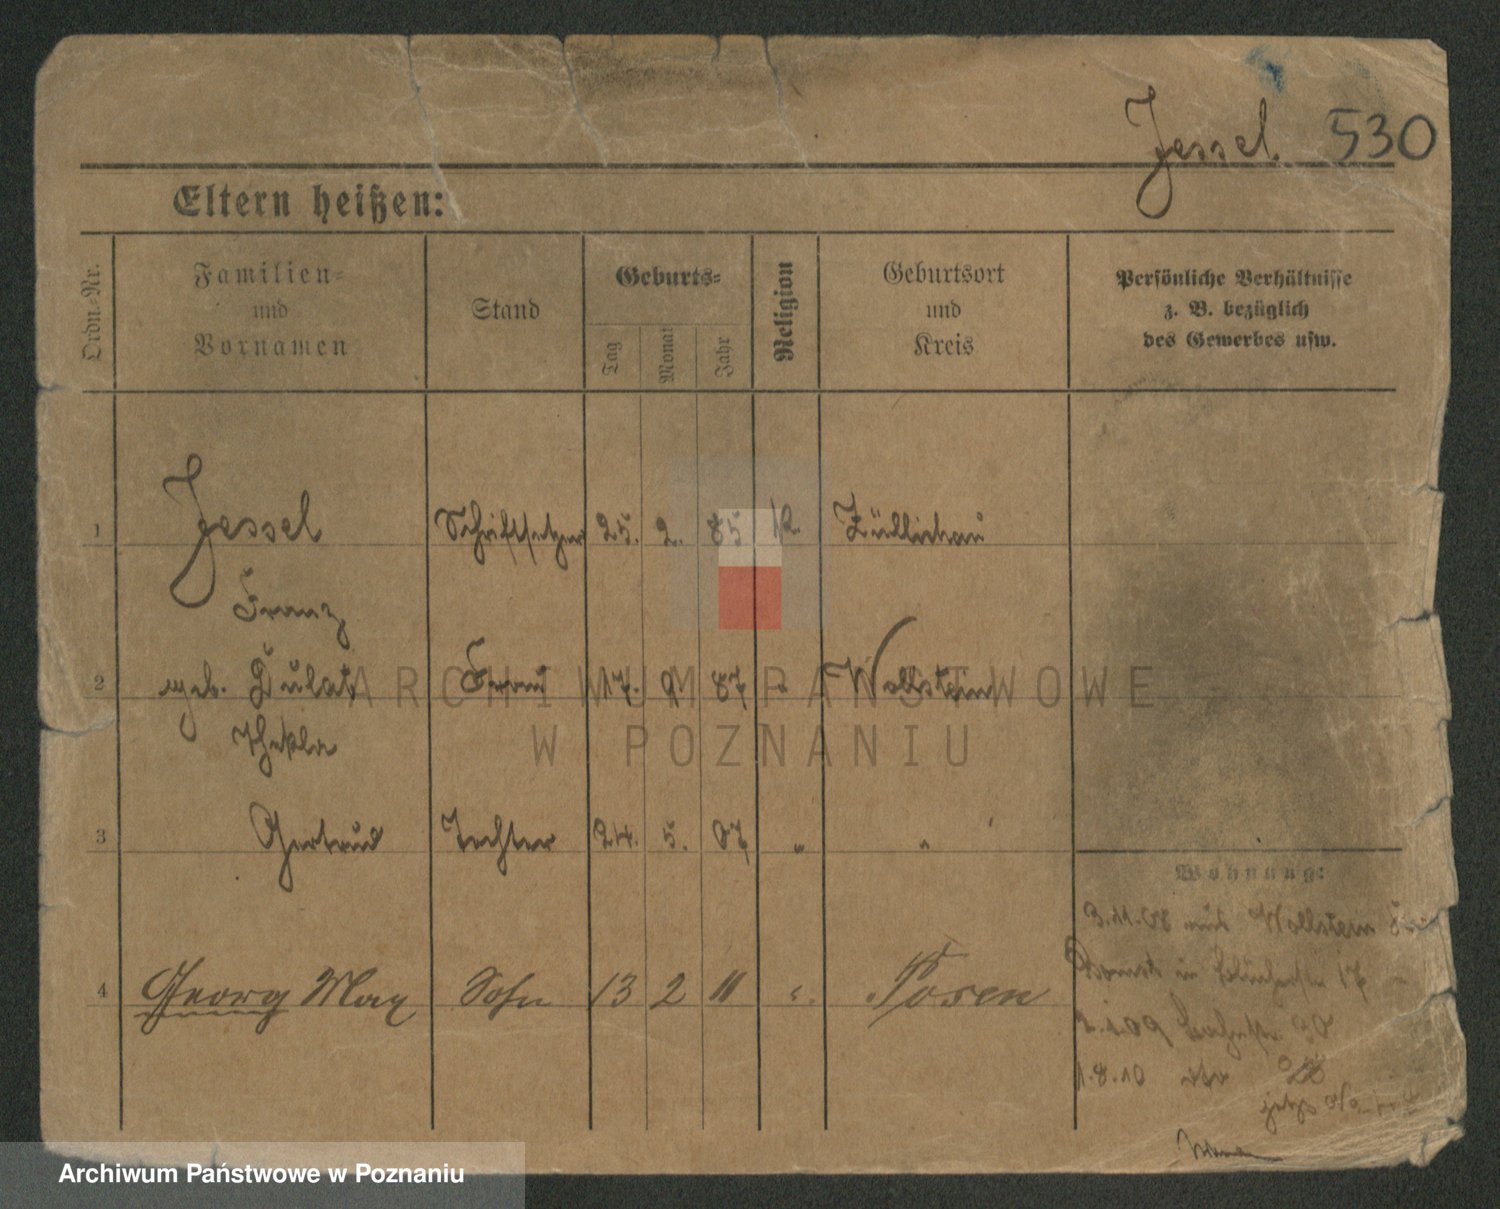 Jessel. 530
Eltern heißen:
Ordn.-Nr.
Familien-
und
Vornamen
Stand
Geburts-
Tag
Monat
Jahr
Religion
Geburtsort
und
Kreis
Persönliche Verhältnisse
z. B. bezüglich
des Gewerbes usw.
1 Jessel Schriftsetzer 25. 2. 85 K. Züllichau
Franz
2 geb. Dulat Frau 17. 9 87 " Wollstein
Thekla
3 Gertrud Tochter 24. 5. 07 " "
4 Georg Max Sohn 13 2 11 ". Posen
Wohnung:
3.11.08 aus Wollstein
17
2.1.09
1.8.10
jetzt
ARCHIWUM PAŃSTWOWE
W POZNANIU
Archiwum Państwowe w Poznaniu